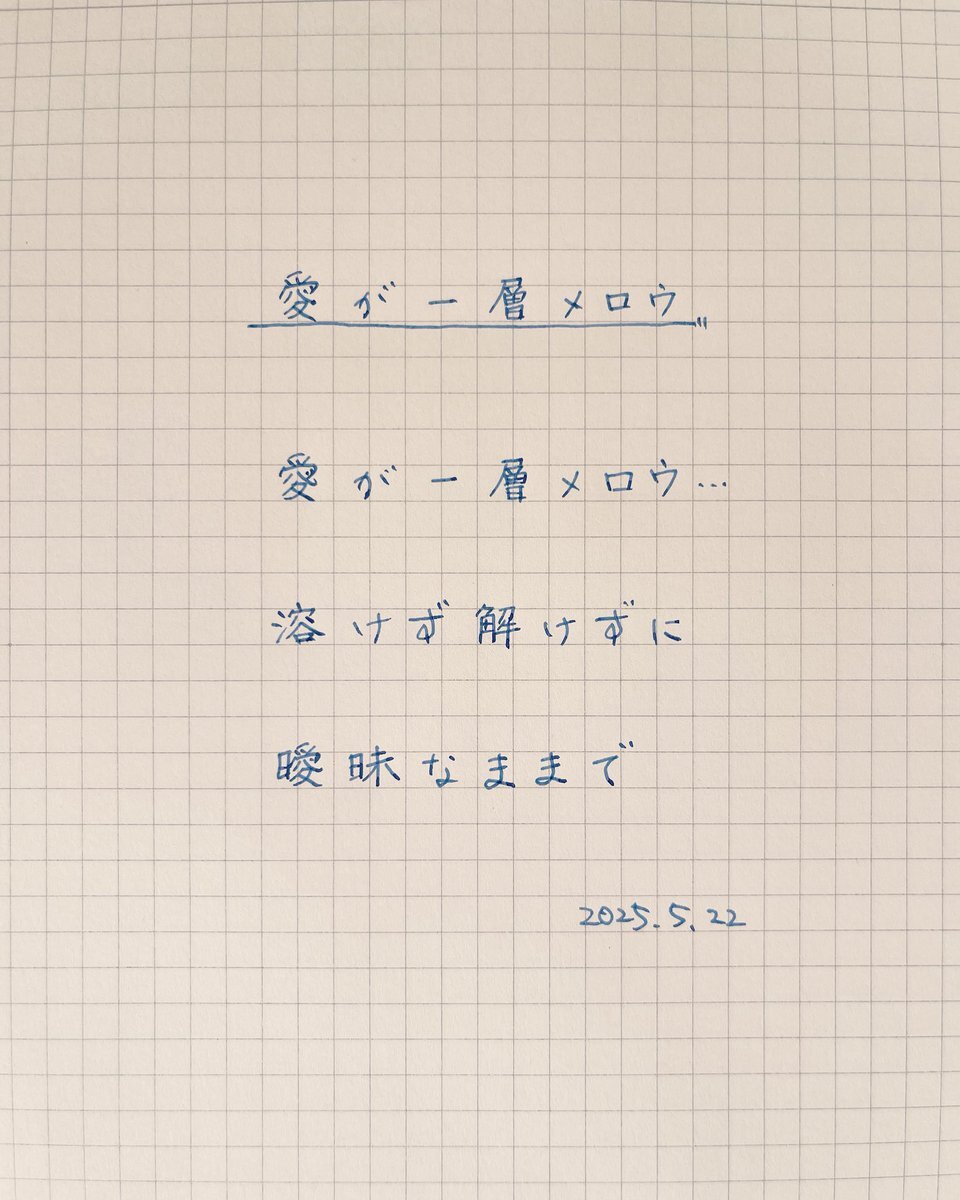 愛が一層メロウ
愛が一層メロウ…
溶けず解けずに
曖昧なままで
2025.5.22